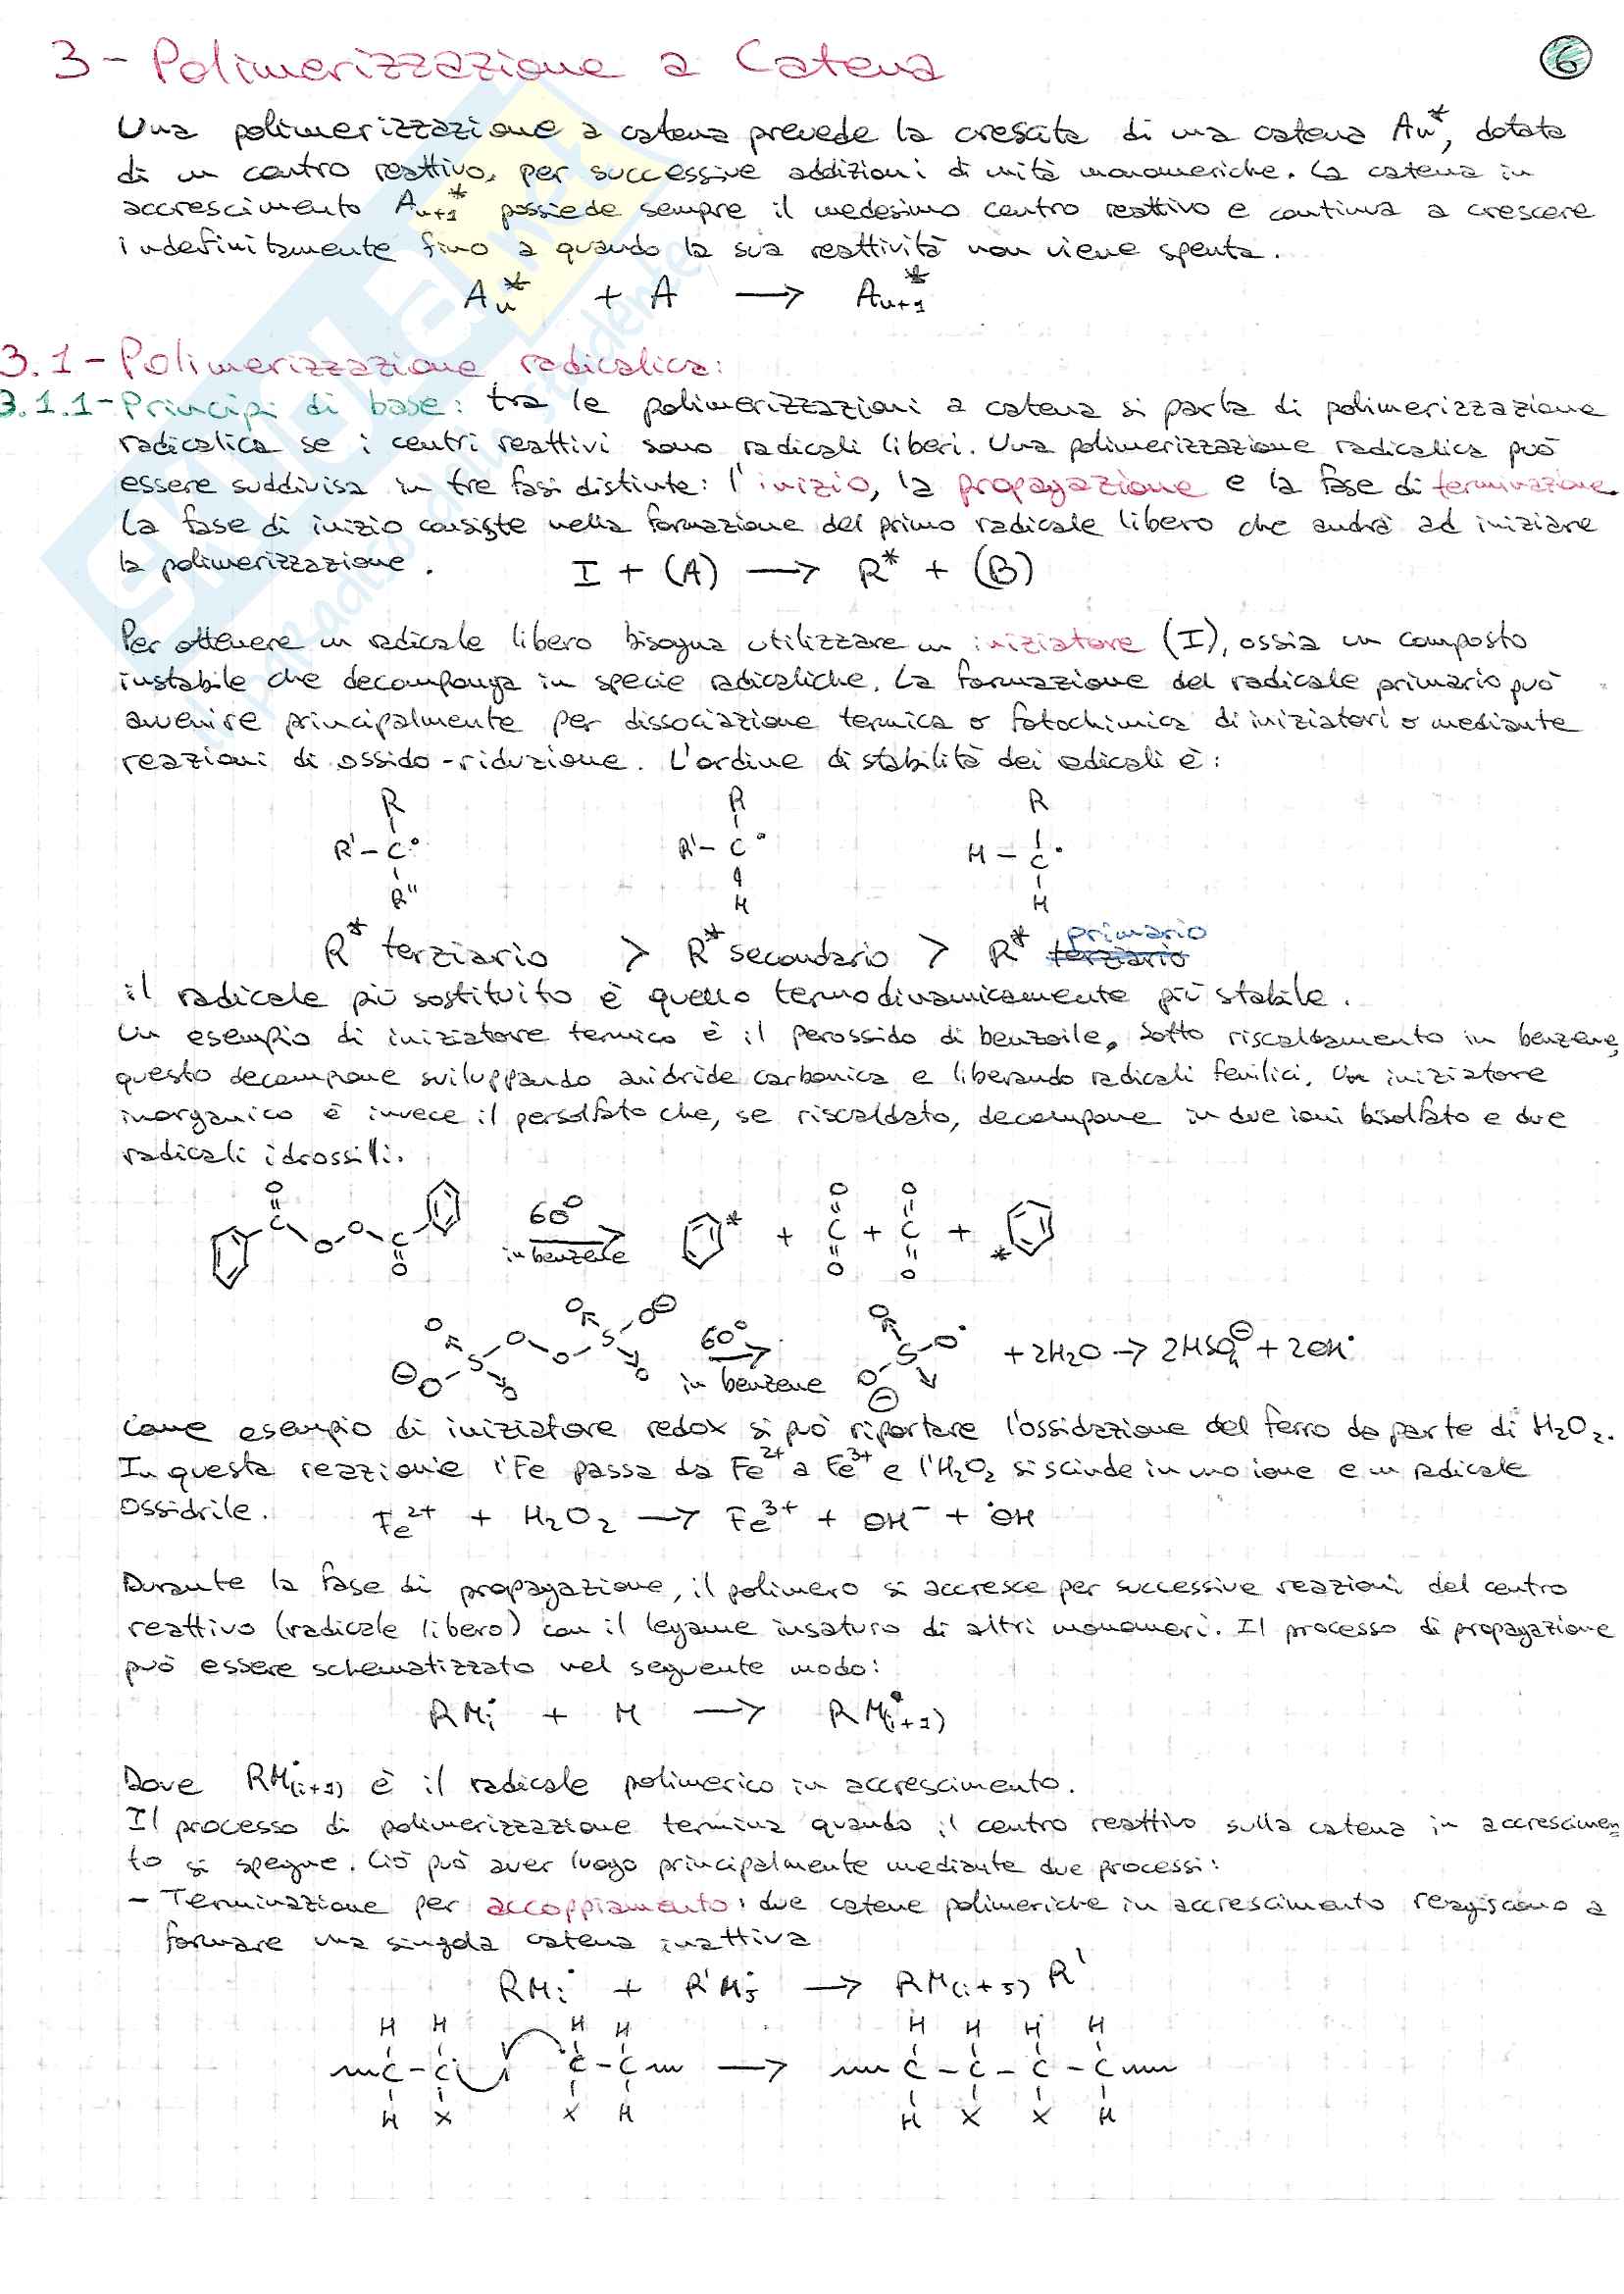 3 - Polimerizzazione a Catena
6
Una polimerizzazione a catena prevede la crescita di una catena An*, dotata
di un centro reattivo, per successive addizioni di unità monomeriche. La catena in
accrescimento An+1* possiede sempre il medesimo centro reattivo e continua a crescere
indefinitamente fino a quando la sua reattività non viene spenta.
An* + A → An+1*
3.1 - Polimerizzazione radicalica:
3.1.1 - Principi di base: tra le polimerizzazioni a catena si parla di polimerizzazione
radicalica se i centri reattivi sono radicali liberi. Una polimerizzazione radicalica può
essere suddivisa in tre fasi distinte: l'inizio, la propagazione e la fase di terminazione.
La fase di inizio consiste nella formazione del primo radicale libero che andrà ad iniziare
la polimerizzazione. I + (A) → R* + (B)
Per ottenere un radicale libero bisogna utilizzare un iniziatore (I), ossia un composto
instabile che decomponga in specie radicaliche. La formazione del radicale primario può
avvenire principalmente per dissociazione termica o fotochimica di iniziatori o mediante
reazioni di ossido-riduzione. L'ordine di stabilità dei radicali è:
R R R
R' - C• R' - C• H - C•
R" H H
primario
R* terziario > R* secondario > R* terziario
il radicale più sostituito è quello termodinamicamente più stabile.
Un esempio di iniziatore termico è il perossido di benzoile. Sotto riscaldamento in benzene,
questo decompone sviluppando anidride carbonica e liberando radicali fenilici. Un iniziatore
inorganico è invece il persolfato che, se riscaldato, decompone in due ioni bisolfato e due
radicali idrossili.
O O O
C O O C 60° * + C + C + *
O in benzene O O
O O O⊖ O
S O O S 60° S O• + 2H2O → 2HSO4⊖ + 2OH•
⊖O O O in benzene O⊖
Come esempio di iniziatore redox si può riportare l'ossidazione del ferro da parte di H2O2.
In questa reazione l'Fe passa da Fe2+ a Fe3+ e l'H2O2 si scinde in uno ione e un radicale
ossidrile. Fe2+ + H2O2 → Fe3+ + OH- + •OH
Durante la fase di propagazione, il polimero si accresce per successive reazioni del centro
reattivo (radicale libero) con il legame insaturo di altri monomeri. Il processo di propagazione
può essere schematizzato nel seguente modo:
RMi• + M → RM(i+1)•
Dove RM(i+1)• è il radicale polimerico in accrescimento.
Il processo di polimerizzazione termina quando il centro reattivo sulla catena in accrescimen
to si spegne. Ciò può aver luogo principalmente mediante due processi:
- Terminazione per accoppiamento: due catene polimeriche in accrescimento reagiscono a
formare una singola catena inattiva
RMi• + R'Mj• → RM(i+j)R'
H H H H H H H H
C - C• •C - C → C - C - C - C
H X X H H X X H